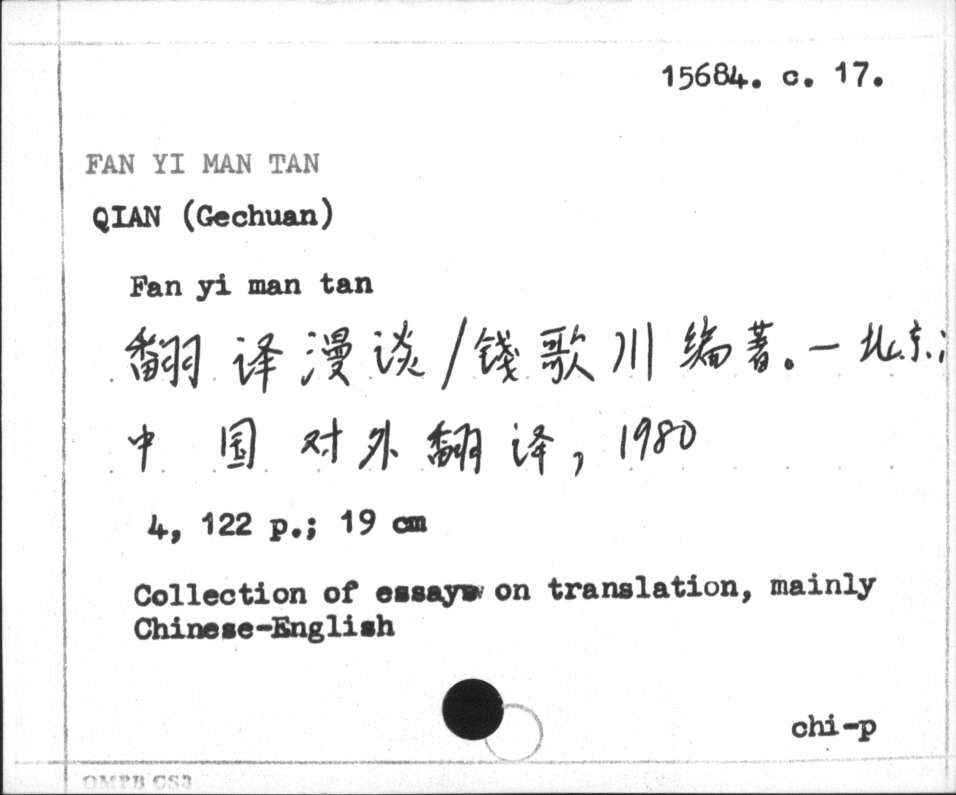 15684. c. 17.
FAN YI MAN TAN
QIAN (Gechuan)
Fan yi man tan
翻译漫谈/錢歌川编著。— 北京;
中国对外翻译, 1980
4, 122 p.; 19 cm
Collection of essays on translation, mainly
Chinese-English
chi-p
OMPB CS3